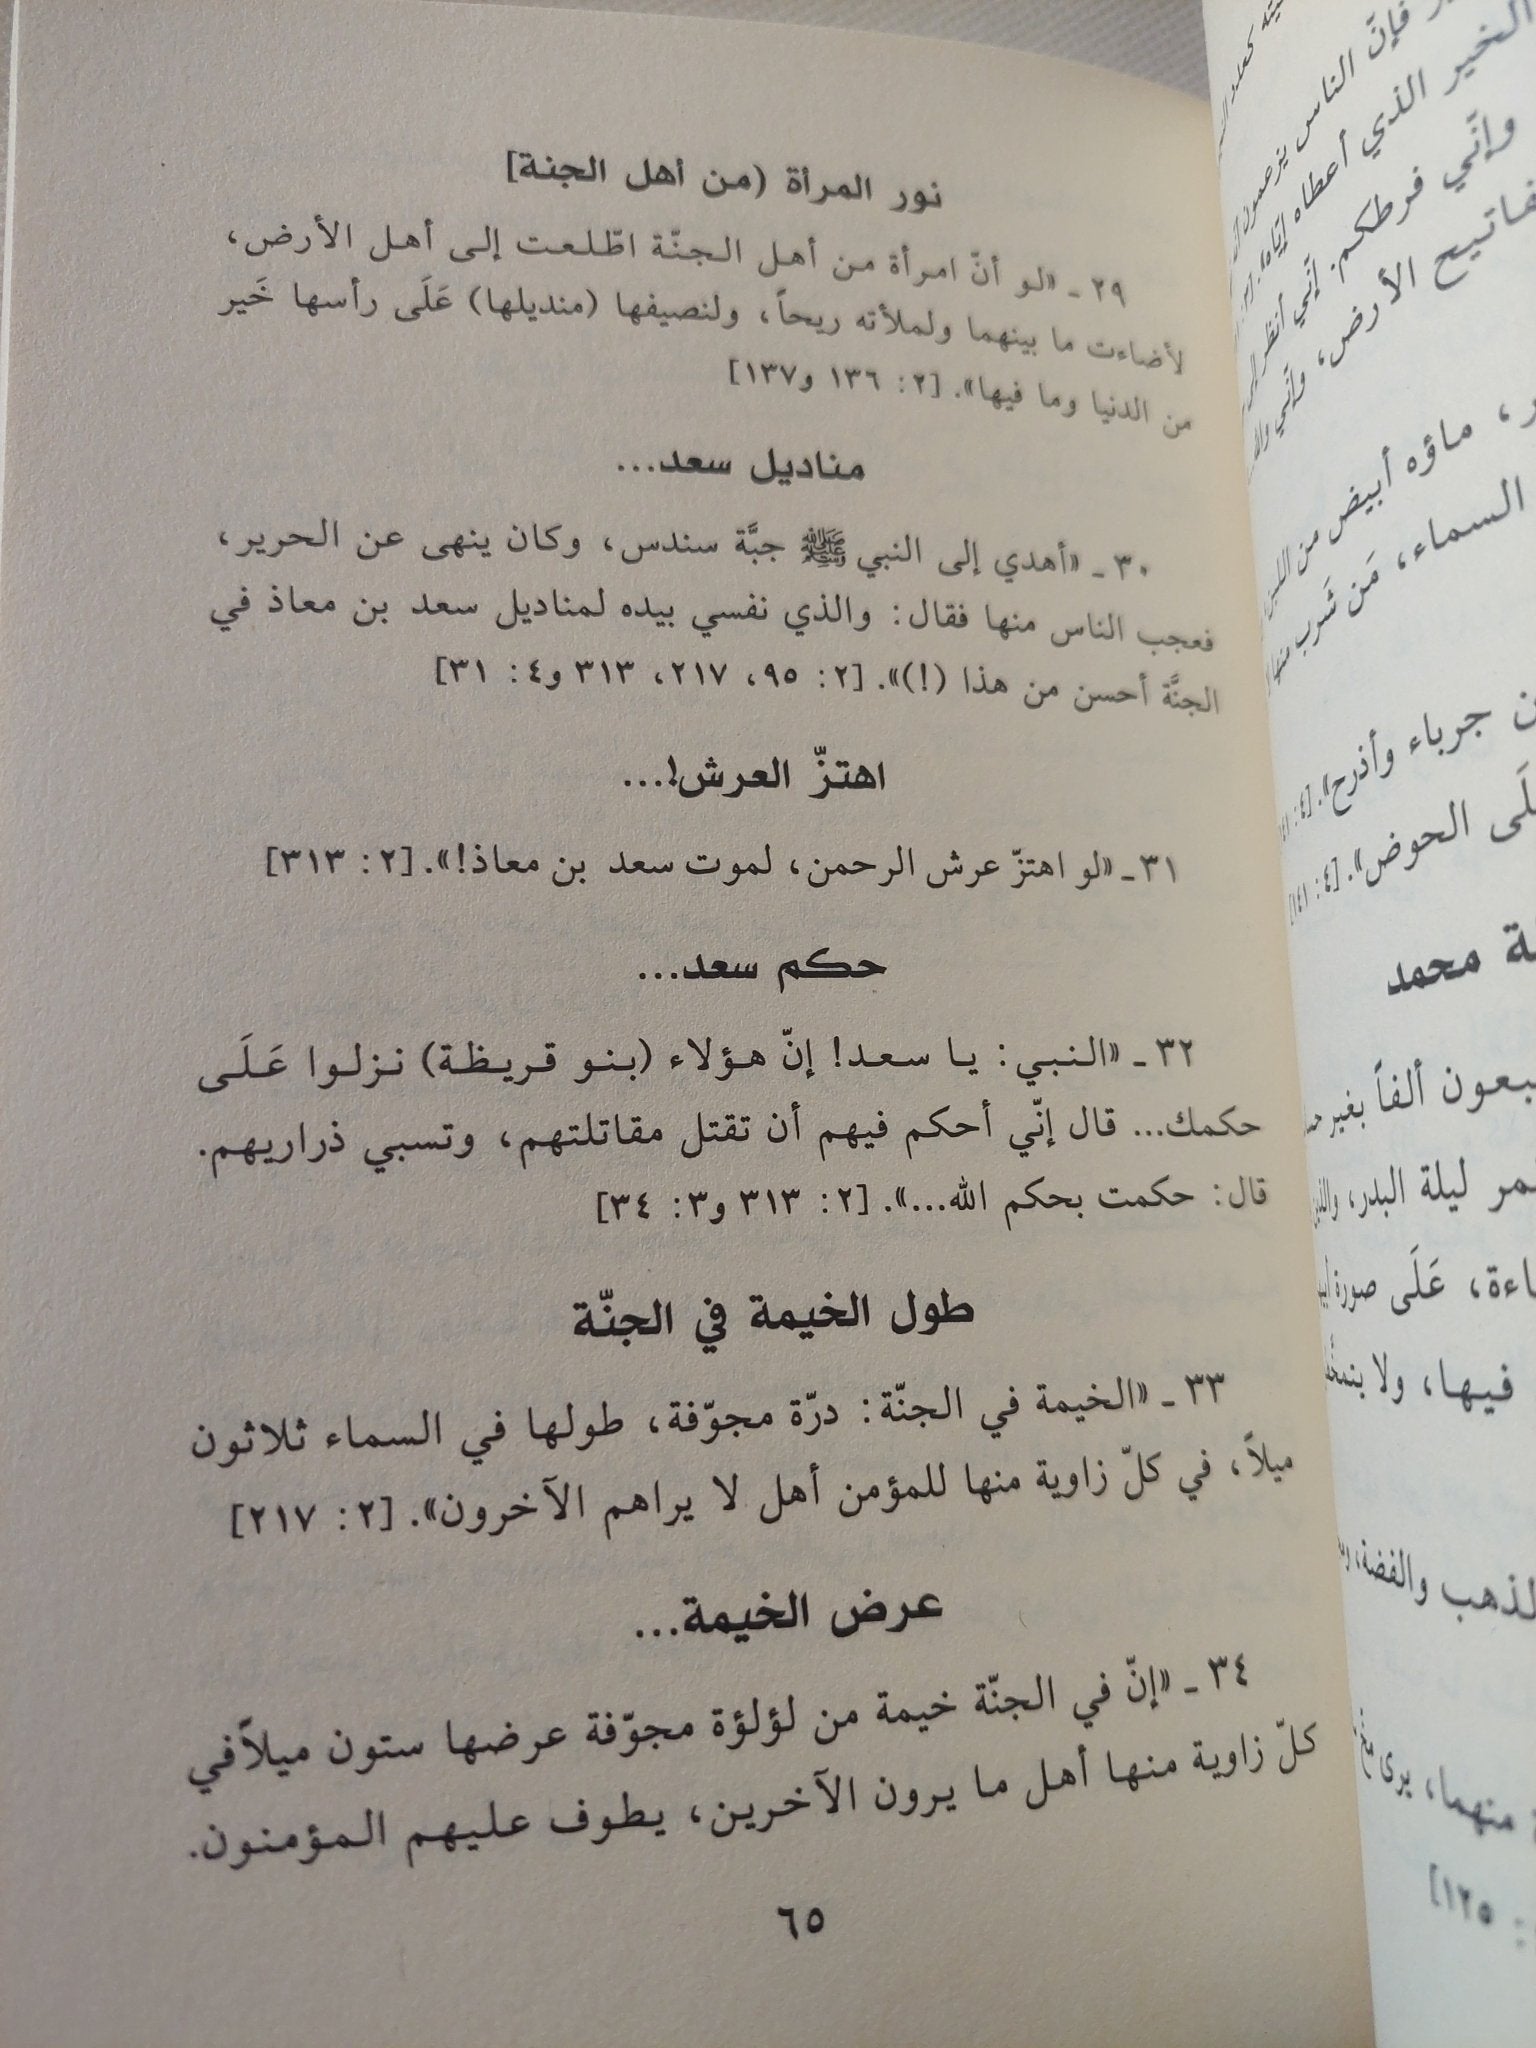 نور المرأة (من أهل الجنة]
٢٩ ـ «لو أنّ امرأة من أهل الجنّة اطّلعت إلى أهل الأرض،
لأضاءت ما بينهما ولملأته ريحاً، ولنصيفها (منديلها) عَلَى رأسها خَير
من الدنيا وما فيها». [٢: ١٣٦ و١٣٧]
مناديل سعد...
٣٠ ـ «أهدي إلى النبي ﷺ جبَّة سندس، وكان ينهى عن الحرير،
فعجب الناس منها فقال: والذي نفسي بيده لمناديل سعد بن معاذ في
الجنَّة أحسن من هذا (!)». [٢: ٩٥، ٢١٧، ٣١٣ و٤: ٣١]
اهتزّ العرش!...
٣١ ـ «لو اهتزّ عرش الرحمن، لموت سعد بن معاذ!». [٢: ٣١٣]
حكم سعد...
٣٢ ـ «النبي: يا سعد! إنّ هؤلاء (بنو قريظة) نزلوا عَلَى
حكمك... قال إنّي أحكم فيهم أن تقتل مقاتلتهم، وتسبي ذراريهم.
قال: حكمت بحكم الله...». [٢: ٣١٣ و٣: ٣٤]
طول الخيمة في الجنّة
٣٣ ـ «الخيمة في الجنّة: درّة مجوّفة، طولها في السماء ثلاثون
ميلاً، في كلّ زاوية منها للمؤمن أهل لا يراهم الآخرون». [٢: ٢١٧]
عرض الخيمة...
٣٤ ـ «إنّ في الجنّة خيمة من لؤلؤة مجوّفة عرضها ستون ميلاً في
كلّ زاوية منها أهل ما يرون الآخرين، يطوف عليهم المؤمنون.
٦٥
فإنّ الناس يزعمون
الخير الذي أعطاه إيّاه
وإنّي فرطكم. إنّي أنظر إلى
الأرض، وإنّي والله
ماؤه أبيض من اللبن
السماء، مَن شَرب منها
جرباء وأذرح». [٤:
الحوض». [٤: ١٤١]
محمد
ألفاً بغير
ليلة البدر،
عَلَى صورة
فيها، ولا
والفضة،
منهما، يرى
١٢٥]